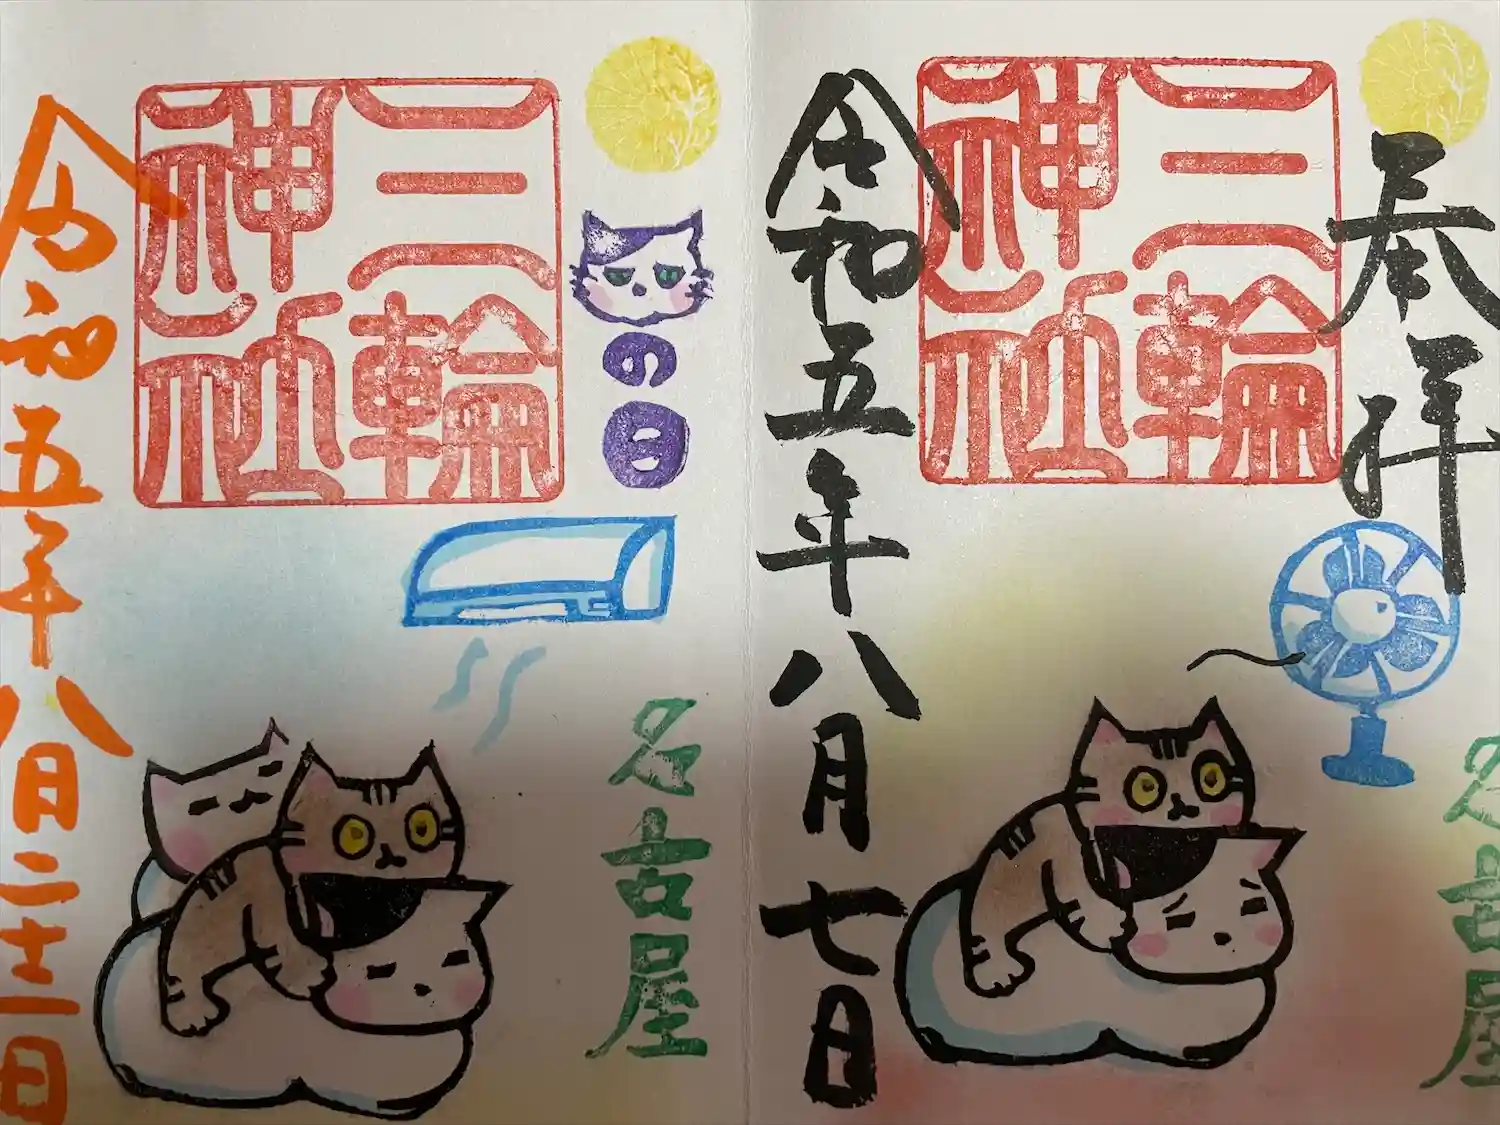 奉拝
三輪
神社
名古屋
令和五年八月七日
の日
三輪
神社
名古屋
令和五年八月二十二日